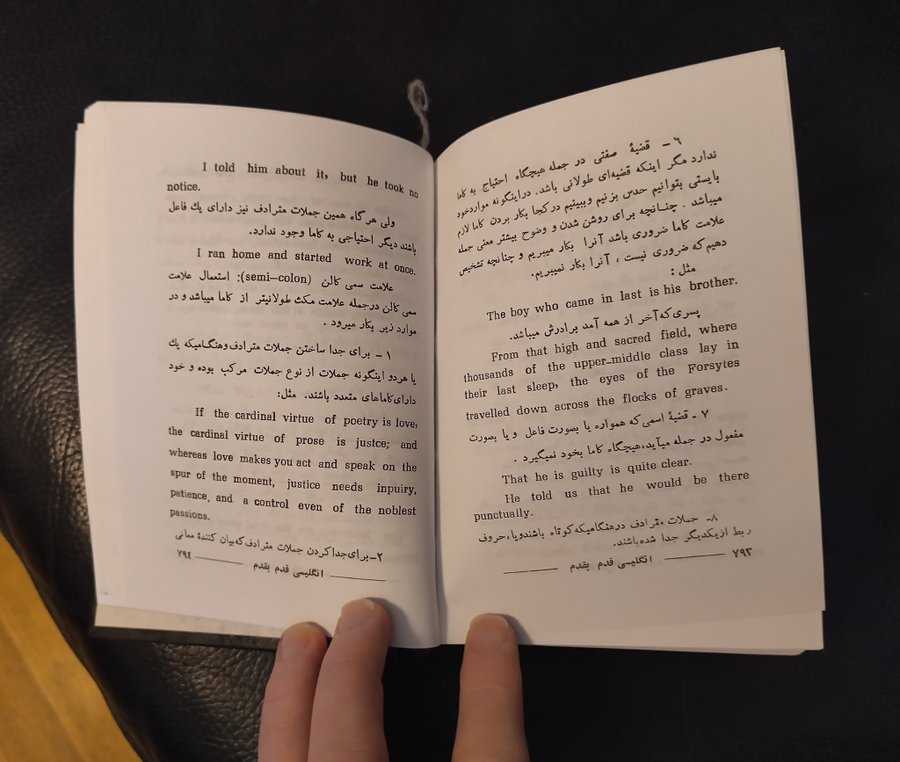 ۶ ــ قضیهٔ صفتی در جمله هیچگاه احتیاج به کاما
ندارد مگر اینکه قضیه‌ای طولانی باشد. دراینگونه مواردخود
بایستی بتوانیم حدس بزنیم وببینیم درکجا بکار بردن کاما لازم
میباشد . چنـانچه برای روشن شدن و وضوح بیشتر معنی جمله
علامت کاما ضروری باشد آنرا بکار میبریم و چنانچه تشخیص
دهیم که ضروری نیست ، آنرا بکار نمیبریم.
مثل :
The boy who came in last is his brother.
پسری‌که‌آخر از همه آمد برادرش میباشد.
From that high and sacred field, where
thousands of the upper-middle class lay in
their last sleep, the eyes of the Forsytes
travelled down across the flocks of graves.
۷ ـ قضیهٔ اسمی‌که همواره یا بصورت فاعل و یا بصورت
مفعول در جمله میآید،هیچگاه کاما بخود نمیگیرد .
That he is guilty is quite clear.
He told us that he would be there
punctually.
۸ـ جملات مترادف درهنگامیکه کوتاه باشندویا،حروف
ربط ازیکدیگر جدا شده‌باشند.
انگلیسی قدم بقدم ۷۹۳
I told him about it, but he took no
notice.
ولی هرگاه همین جملات مترادف نیز دارای یك فاعل
باشند دیگر احتیاجی به کاما وجود ندارد.
I ran home and started work at once.
علامت سمی کالن (semi-colon): استعمال علامت
سمی کالن درجمله علامت مکث طولانیتر از کاما میباشد و در
موارد زیر بکار میرود .
۱ ــ برای جدا ساختن جملات مترادف‌وهنگـامیکه یك
یا هردو اینگونه جملات از نوع جملات مرکب بوده و خود
دارای‌کاماهای متعدد باشند. مثل:
If the cardinal virtue of poetry is love,
the cardinal virtue of prose is justce; and
whereas love makes you act and speak on the
spur of the moment, justice needs inpuiry,
patience, and a control even of the noblest
passions.
۲ــ برای‌جداکردن جملات مترادف‌که‌بیان کنندهٔ معانی
انگلیسی قدم بقدم ۷۹٤